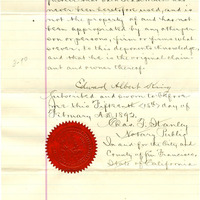 never been heretofore used, and is
not the property of and has not
been appropriated by any other per-
son or persons, firm or firms what
soever, to this deponents knowledge,
and that he is the original claim-
ant and owner thereof.
Edward Albert
Subscribed and sworn to before
me this Fifteenth (15th) day of
February A.D. 1892.
Chas. T. Stanley
Notary Public
In and for the City and
County of San Francisco,
State of California